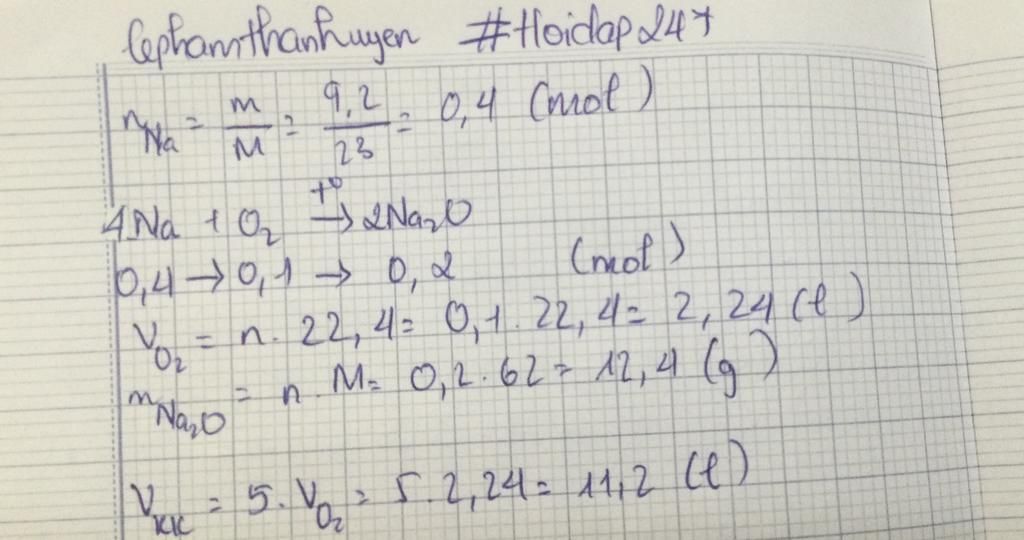 lephamthanhuyen #Hoidap247
nNa = m/M = 9,2/23 = 0,4 (mol)
4Na + O₂ →t° 2Na₂O
0,4 → 0,1 → 0,2 (mol)
VO₂ = n. 22,4 = 0,1. 22,4 = 2,24 (l)
mNa₂O = n. M = 0,2. 62 = 12,4 (g)
VKK = 5. VO₂ = 5. 2,24 = 11,2 (l)